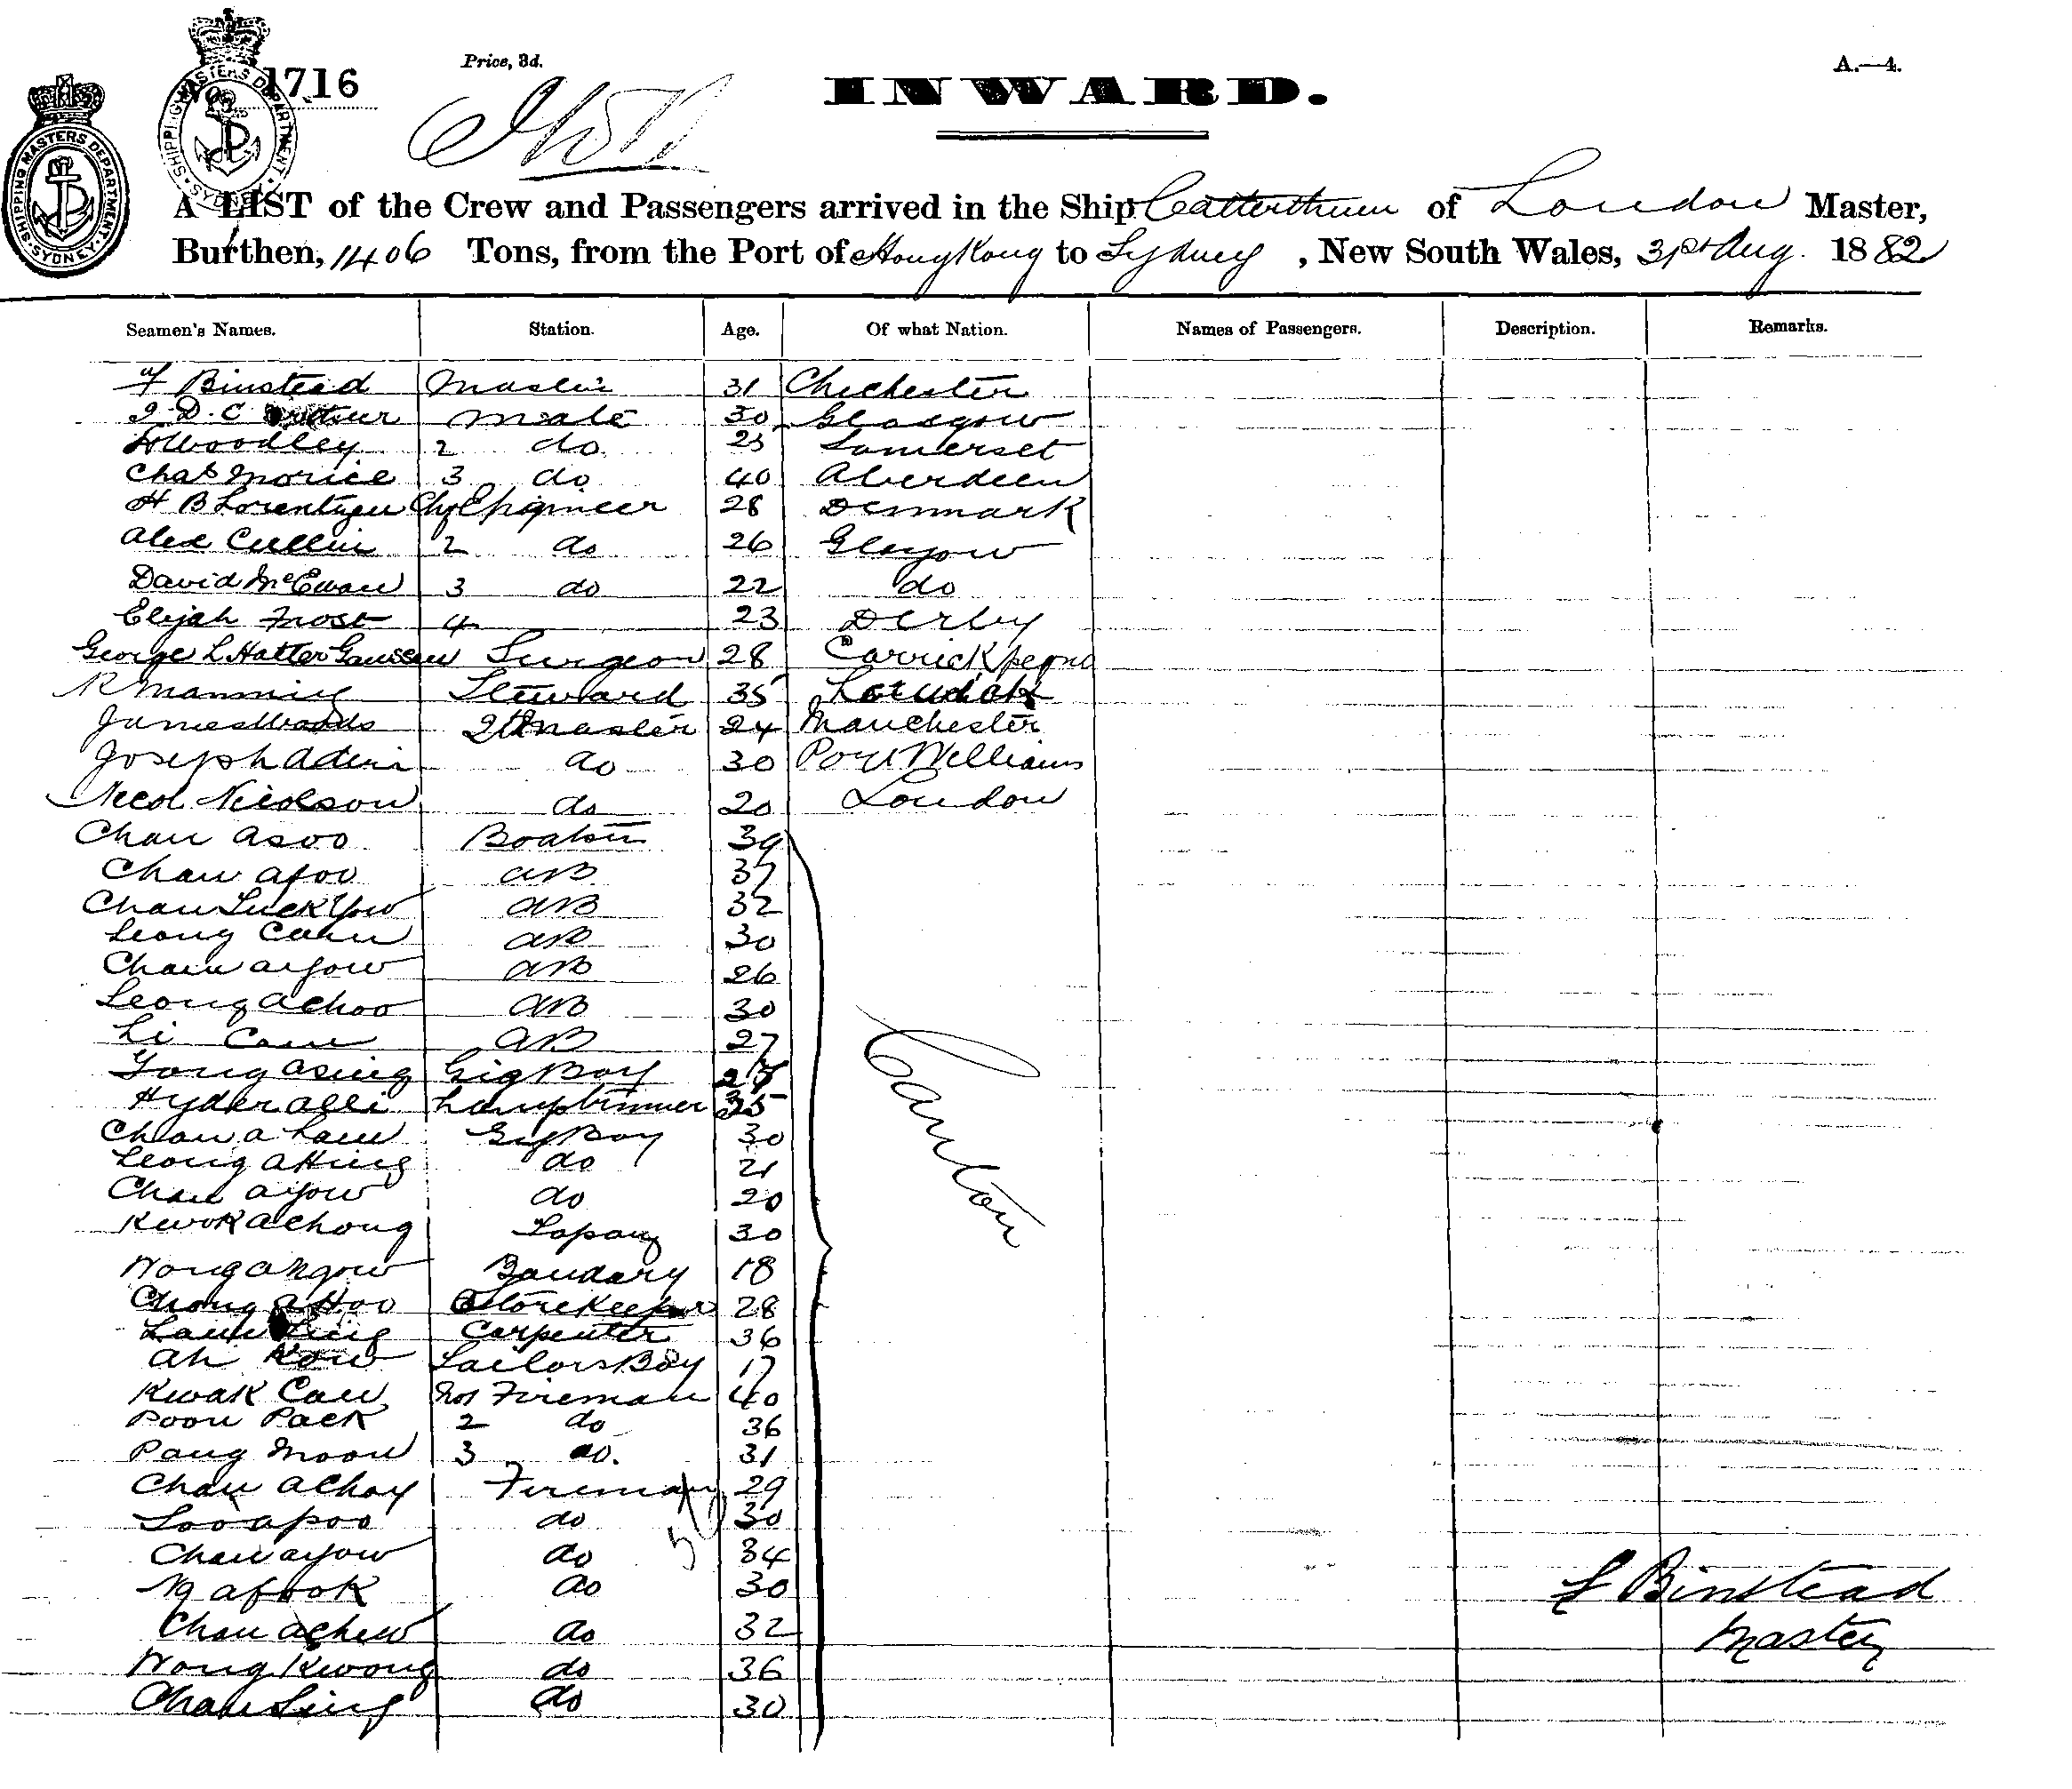 No. 1716
Price, 3d.
INWARD.
A.—4.
SHIPPING MASTERS DEPARTMENT SYDNEY
SHIPPING MASTERS DEPARTMENT SYDNEY
A LIST of the Crew and Passengers arrived in the Ship Catterthun of London Master,
Burthen, 1406 Tons, from the Port of Hong Kong to Sydney, New South Wales, 31st Aug. 1882
Seamen's Names. Station. Age. Of what Nation. Names of Passengers. Description. Remarks.
Binstead Master 31 Chichester
J. D. C Mate 30 Glasgow
Woodley 2 do 23 Somerset
Chas Morice 3 do 40 Aberdeen
H B Lorentzen Chf Engineer 28 Denmark
Alex Cullin 2 do 26 Glasgow
David McEwan 3 do 22 do
Elijah Frost 4 23 Derby
George L Hatter Surgeon 28
R Manning Steward 35
James Woods Master 24 Manchester
Joseph do 30 Port Williams
Nicol Nicolson do 20 London
Chan Asoo Boatsn 39
Chan Afoo AB 37
Chan Luck Yow AB 32
Leong AB 30
Chan AB 26
Leong Achoo AB 30
Li Cam AB 27
Asing Gig Boy
Hyder Alli Lamptrimmer
Chan a Lam Gig Boy 30
Leong A Hing do 21
Chan Ayow do 20
Kwok Achong 30
Wong Bandary 18
Chong a Hoo Storekeeper 28
Carpenter 36
Ah Kow Sailors Boy 17
Kwak Can No1 Fireman 40
Poon Pack 2 do 36
Pang Moon 3 do. 31
Chan Achoy Fireman 29
do 30
Chan ayow do 34
Ng afook do 30
Chan achew do 32
Wong Kwong do 36
Chan Sing do 30
Canton
Binstead
Master